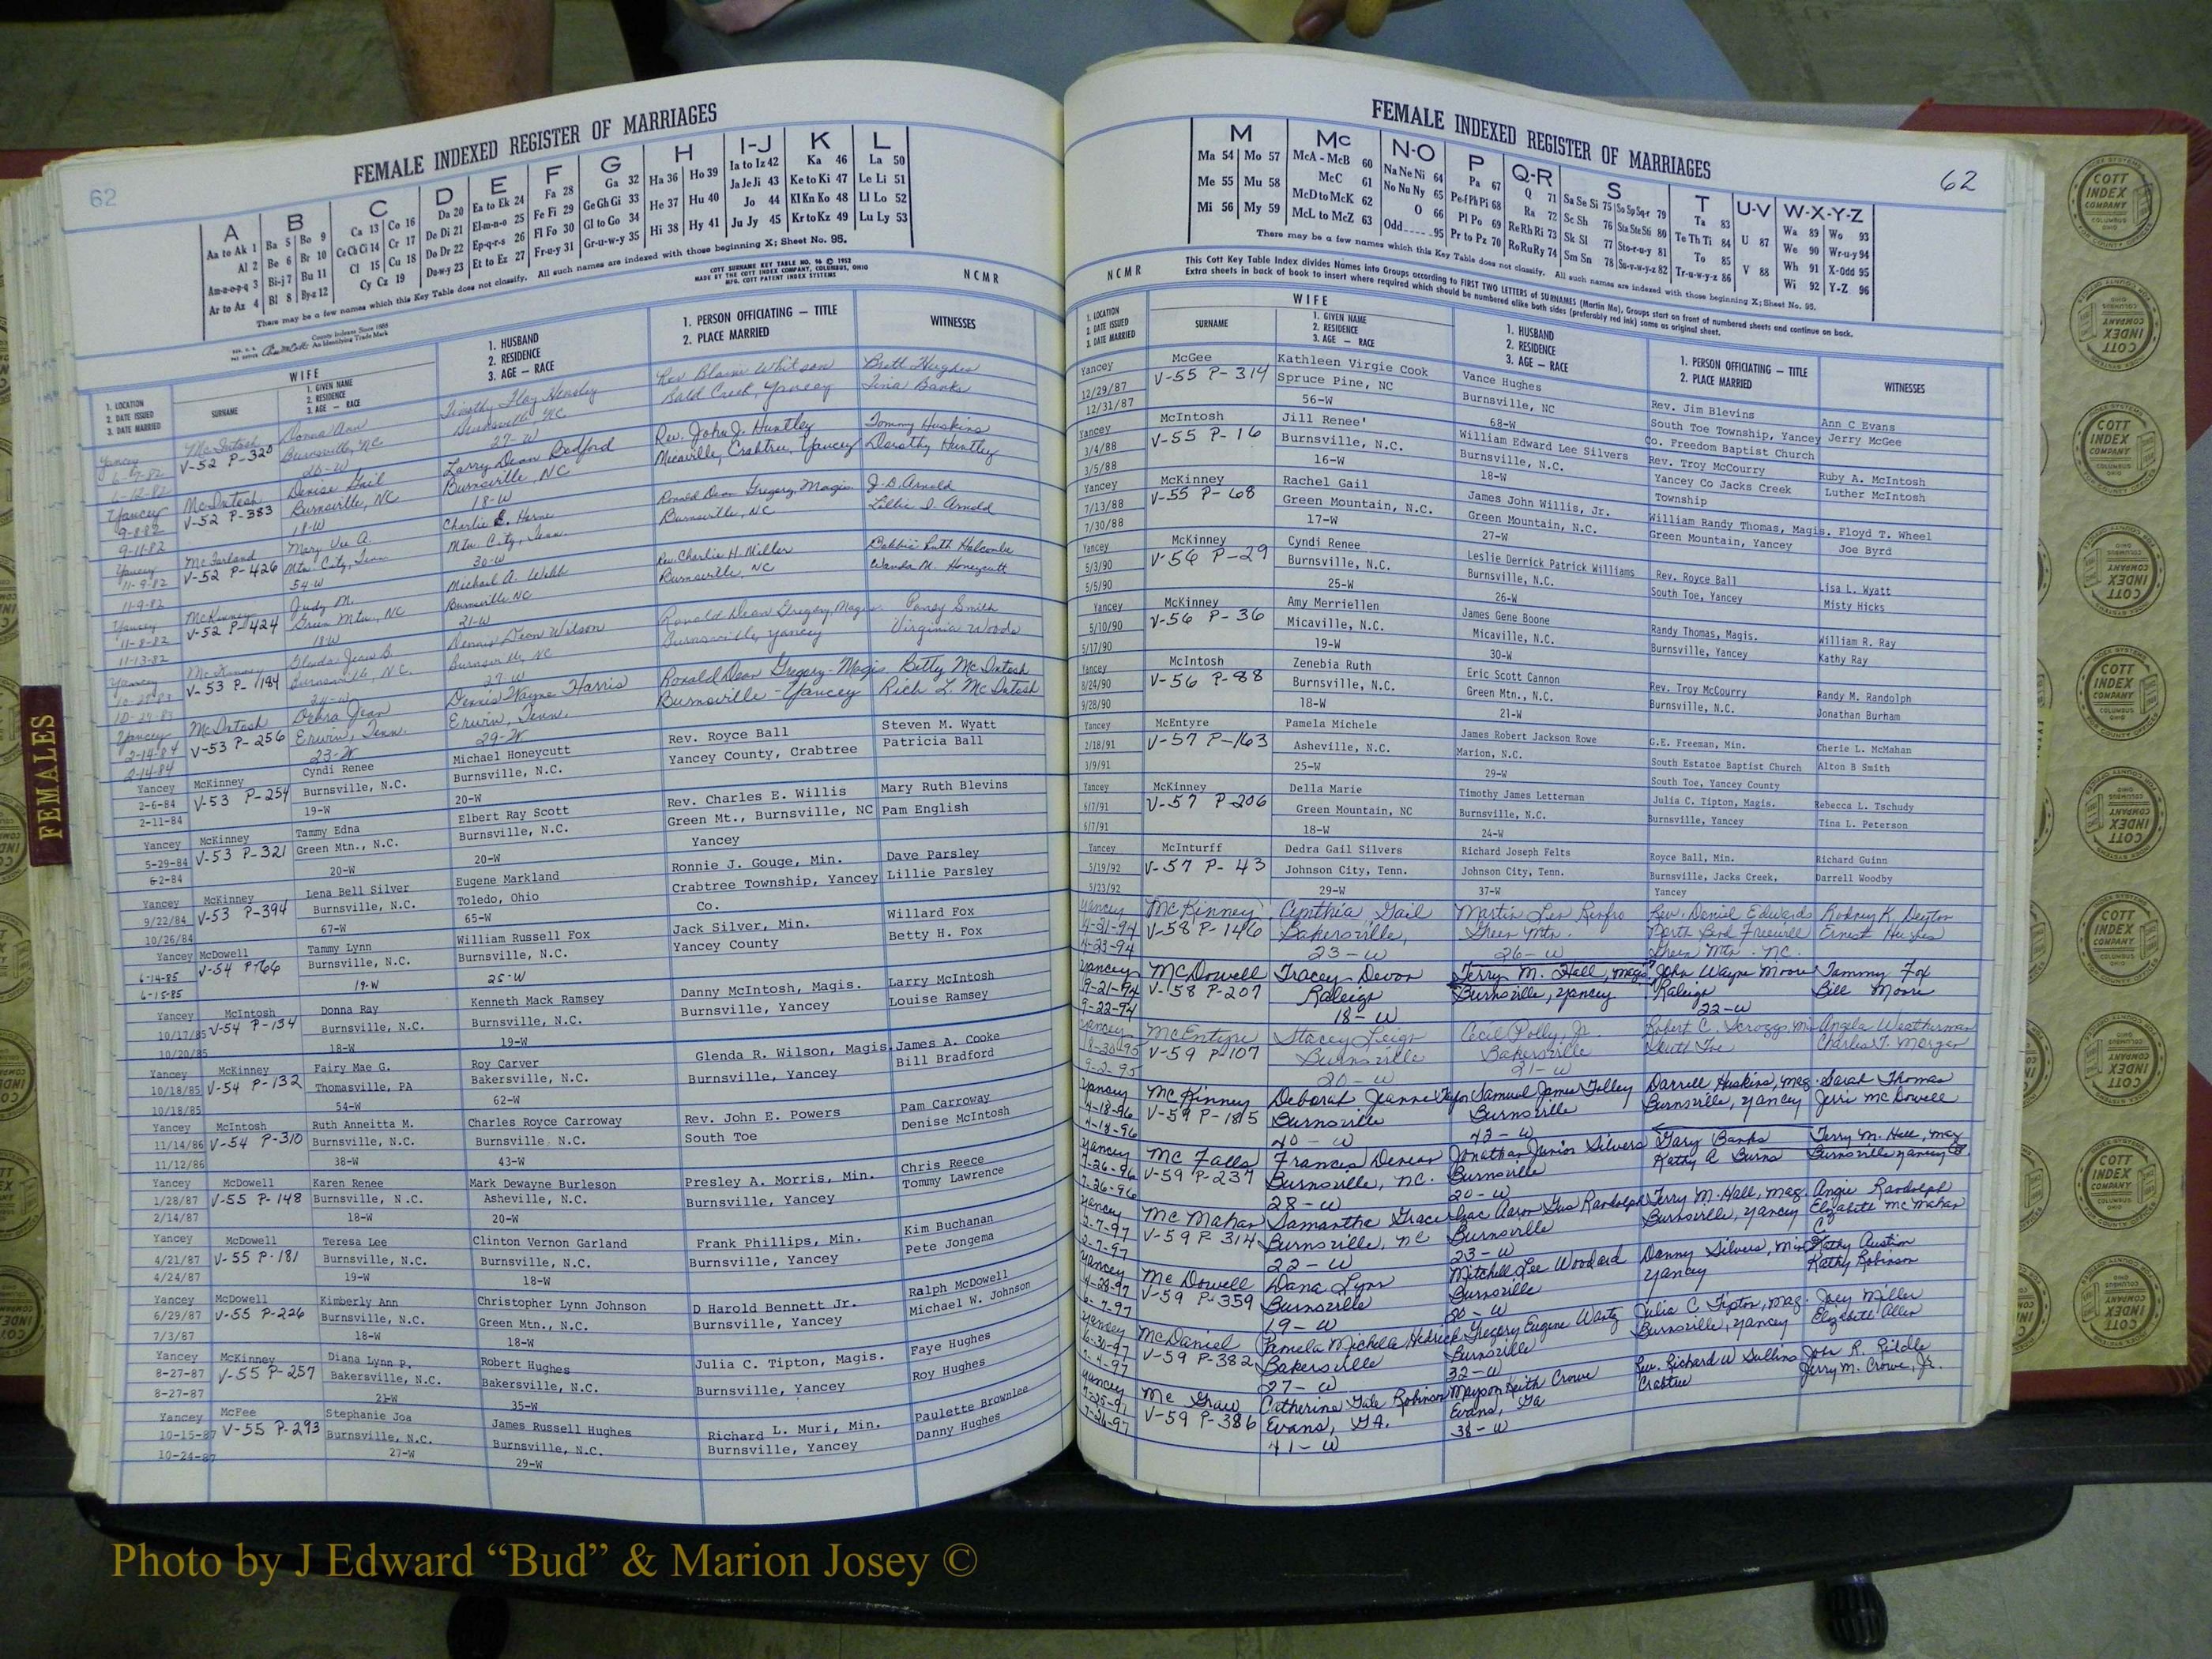 62
FEMALE INDEXED REGISTER OF MARRIAGES
A
Aa to Ak 1
Al 2
Am-n-o-p-q 3
Ar to Az 4
B
Ba 5 Bo 9
Be 6 Br 10
Bi-j 7 Bu 11
Bl 8 By-z 12
C
Ca 13 Co 16
Ce Ch Ci 14 Cr 17
Cl 15 Cu 18
Cy Cz 19
D
Da 20
De Di 21
Do Dr 22
Du-w-y 23
E
Ea to Ek 24
El-m-n-o 25
Ep-q-r-s 26
Et to Ez 27
F
Fa 28
Fe Fi 29
Fl Fo 30
Fr-u-y 31
G
Ga 32
Ge Gh Gi 33
Gl to Go 34
Gr-u-w-y 35
H
Ha 36 Ho 39
He 37 Hu 40
Hi 38 Hy 41
I-J
Ia to Iz 42
Ja Je Ji 43
Jo 44
Ju Jy 45
K
Ka 46
Ke to Ki 47
Kl Kn Ko 48
Kr to Kz 49
L
La 50
Le Li 51
Ll Lo 52
Lu Ly 53
There may be a few names which this Key Table does not classify. All such names are indexed with those beginning X; Sheet No. 95.
COTT SURNAME KEY TABLE NO. 96 © 1952
MADE BY THE COTT INDEX COMPANY, COLUMBUS, OHIO
MFG. COTT PATENT INDEX SYSTEMS
NCMR
County Indexes Since 1888
An Identifying Trade Mark
1. LOCATION
2. DATE ISSUED
3. DATE MARRIED
WIFE
SURNAME
1. GIVEN NAME
2. RESIDENCE
3. AGE — RACE
1. HUSBAND
2. RESIDENCE
3. AGE — RACE
1. PERSON OFFICIATING — TITLE
2. PLACE MARRIED
WITNESSES
Yancey McIntosh Donna Ann Timothy Floy Hensley Rev Blaine Whitson Brett Hughes
V-52 P-320 Burnsville, NC Burnsville NC Bald Creek, Yancey Tina Banks
6-12-82 20-W 27-W
Yancey McIntosh Denise Gail Larry Dean Bedford Rev. John J. Huntley Tommy Huskins
9-8-82 V-52 P-383 Burnsville, NC Burnsville, NC Micaville, Crabtree, Yancey Dorothy Huntley
9-11-82 18-W 18-W
Yancey McFarland Mary Vee A. Charlie E. Horne Ronald Dean Gregory, Magis. J.D. Arnold
11-9-82 V-52 P-426 Mtn. City, Tenn Mtn. City, Tenn. Burnsville, NC Lillie I. Arnold
11-9-82 54-W 30-W
Yancey McKinney Judy M. Michael A. Webb Rev. Charlie H. Miller Bobbie Ruth Holcombe
11-8-82 V-52 P-424 Green Mtn., NC Burnsville NC Burnsville, NC Wanda M. Honeycutt
11-13-82 18-W 21-W
Yancey McKinney Glenda Jean B. Dennis Dean Wilson Ronald Dean Gregory, Magis Pansy Smith
V-53 P-184 Burnsville, N.C. Burnsville, NC Burnsville, Yancey Virginia Woods
24-W 27-W
Yancey McIntosh Debra Jean Dennis Wayne Harris Ronald Dean Gregory - Magis Betty McIntosh
2-14-84 V-53 P-256 Erwin, Tenn. Erwin, Tenn. Burnsville - Yancey Rich L. McIntosh
2-14-84 23-W 29-W
Yancey McKinney Cyndi Renee Michael Honeycutt Rev. Royce Ball Steven M. Wyatt
2-6-84 V-53 P-254 Burnsville, N.C. Burnsville, N.C. Yancey County, Crabtree Patricia Ball
2-11-84 19-W 20-W
Yancey McKinney Tammy Edna Elbert Ray Scott Rev. Charles E. Willis Mary Ruth Blevins
5-29-84 V-53 P-321 Green Mtn., N.C. Burnsville, N.C. Green Mt., Burnsville, NC Pam English
6-2-84 20-W 20-W Yancey
Yancey McKinney Lena Bell Silver Eugene Markland Ronnie J. Gouge, Min. Dave Parsley
9/22/84 V-53 P-394 Burnsville, N.C. Toledo, Ohio Crabtree Township, Yancey Lillie Parsley
10/26/84 67-W 65-W Co.
Yancey McDowell Tammy Lynn William Russell Fox Jack Silver, Min. Willard Fox
6-14-85 V-54 P-66 Burnsville, N.C. Burnsville, N.C. Yancey County Betty H. Fox
6-15-85 19-W 25-W
Yancey McIntosh Donna Ray Kenneth Mack Ramsey Danny McIntosh, Magis. Larry McIntosh
10/17/85 V-54 P-134 Burnsville, N.C. Burnsville, N.C. Burnsville, Yancey Louise Ramsey
10/20/85 18-W 19-W
Yancey McKinney Fairy Mae G. Roy Carver Glenda R. Wilson, Magis. James A. Cooke
10/18/85 V-54 P-132 Thomasville, PA Bakersville, N.C. Burnsville, Yancey Bill Bradford
10/18/85 54-W 62-W
Yancey McIntosh Ruth Anneitta M. Charles Royce Carroway Rev. John E. Powers Pam Carroway
11/14/86 V-54 P-310 Burnsville, N.C. Burnsville, N.C. South Toe Denise McIntosh
11/12/86 38-W 43-W
Yancey McDowell Karen Renee Mark Dewayne Burleson Presley A. Morris, Min. Chris Reece
1/28/87 V-55 P-148 Burnsville, N.C. Asheville, N.C. Burnsville, Yancey Tommy Lawrence
2/14/87 18-W 20-W
Yancey McDowell Teresa Lee Clinton Vernon Garland Frank Phillips, Min. Kim Buchanan
4/21/87 V-55 P-181 Burnsville, N.C. Burnsville, N.C. Burnsville, Yancey Pete Jongema
4/24/87 19-W 18-W
Yancey McDowell Kimberly Ann Christopher Lynn Johnson D Harold Bennett Jr. Ralph McDowell
6/29/87 V-55 P-226 Burnsville, N.C. Green Mtn., N.C. Burnsville, Yancey Michael W. Johnson
7/3/87 18-W 18-W
Yancey McKinney Diana Lynn P. Robert Hughes Julia C. Tipton, Magis. Faye Hughes
8-27-87 V-55 P-257 Bakersville, N.C. Bakersville, N.C. Burnsville, Yancey Roy Hughes
8-27-87 21-W 35-W
Yancey McFee Stephanie Joa James Russell Hughes Richard L. Muri, Min. Paulette Brownlee
10-15-87 V-55 P-293 Burnsville, N.C. Burnsville, N.C. Burnsville, Yancey Danny Hughes
10-24-87 27-W 29-W
FEMALES
FEMALE INDEXED REGISTER OF MARRIAGES
62
M
Ma 54 Mo 57
Me 55 Mu 58
Mi 56 My 59
Mc
McA - McB 60
McC 61
McD to McK 62
McL to McZ 63
N-O
Na Ne Ni 64
No Nu Ny 65
O 66
Odd 95
P
Pa 67
Pe-f Ph Pi 68
Pl Po 69
Pr to Pz 70
Q-R
Q 71
Ra 72
Re Rh Ri 73
Ro Ru Ry 74
S
Sa Se Si 75 So Sp Sq-r 79
Sc Sh 76 Sta Ste Sti 80
Sk Sl 77 Sto-r-u-y 81
Sm Sn 78 Su-v-w-y-z 82
T
Ta 83
Te Th Ti 84
To 85
Tr-u-w-y-z 86
U-V
U 87
V 88
W-X-Y-Z
Wa 89 Wo 93
We 90 Wr-u-y 94
Wh 91 X-Odd 95
Wi 92 Y-Z 96
There may be a few names which this Key Table does not classify. All such names are indexed with those beginning X; Sheet No. 95.
NCMR
This Cott Key Table Index divides Names into Groups according to FIRST TWO LETTERS of SURNAMES (Martin Ma). Groups start on front of numbered sheets and continue on back.
Extra sheets in back of book to insert where required which should be numbered alike both sides (preferably red ink) same as original sheet.
1. LOCATION
2. DATE ISSUED
3. DATE MARRIED
WIFE
SURNAME
1. GIVEN NAME
2. RESIDENCE
3. AGE — RACE
1. HUSBAND
2. RESIDENCE
3. AGE — RACE
1. PERSON OFFICIATING — TITLE
2. PLACE MARRIED
WITNESSES
Yancey McGee Kathleen Virgie Cook Vance Hughes Rev. Jim Blevins Ann C Evans
12/29/87 V-55 P-314 Spruce Pine, NC Burnsville, NC South Toe Township, Yancey Jerry McGee
12/31/87 56-W 68-W Co. Freedom Baptist Church
Yancey McIntosh Jill Renee' William Edward Lee Silvers Rev. Troy McCourry Ruby A. McIntosh
3/4/88 V-55 P-16 Burnsville, N.C. Burnsville, N.C. Yancey Co Jacks Creek Luther McIntosh
3/5/88 16-W 18-W Township
Yancey McKinney Rachel Gail James John Willis, Jr. William Randy Thomas, Magis. Floyd T. Wheel
7/13/88 V-55 P-68 Green Mountain, N.C. Green Mountain, N.C. Green Mountain, Yancey Joe Byrd
7/30/88 17-W 27-W
Yancey McKinney Cyndi Renee Leslie Derrick Patrick Williams Rev. Royce Ball Lisa L. Wyatt
5/3/90 V-56 P-29 Burnsville, N.C. Burnsville, N.C. South Toe, Yancey Misty Hicks
5/5/90 25-W 26-W
Yancey McKinney Amy Merriellen James Gene Boone Randy Thomas, Magis. William R. Ray
5/10/90 V-56 P-36 Micaville, N.C. Micaville, N.C. Burnsville, Yancey Kathy Ray
5/17/90 19-W 30-W
Yancey McIntosh Zenebia Ruth Eric Scott Cannon Rev. Troy McCourry Randy M. Randolph
8/24/90 V-56 P-88 Burnsville, N.C. Green Mtn., N.C. Burnsville, N.C. Jonathan Burham
9/28/90 18-W 21-W
Yancey McEntyre Pamela Michele James Robert Jackson Rowe G.E. Freeman, Min. Cherie L. McMahan
2/18/91 V-57 P-163 Asheville, N.C. Marion, N.C. South Estatoe Baptist Church Alton B Smith
3/9/91 25-W 29-W South Toe, Yancey County
Yancey McKinney Della Marie Timothy James Letterman Julia C. Tipton, Magis. Rebecca L. Tschudy
6/7/91 V-57 P-206 Green Mountain, NC Burnsville, N.C. Burnsville, Yancey Tina L. Peterson
6/7/91 18-W 24-W
Yancey McInturff Dedra Gail Silvers Richard Joseph Felts Royce Ball, Min. Richard Guinn
5/19/92 V-57 P-43 Johnson City, Tenn. Johnson City, Tenn. Burnsville, Jacks Creek, Darrell Woodby
5/23/92 29-W 37-W Yancey
Yancey McKinney Cynthia Gail Martin Lee Renfro Rev. Daniel Edwards Rodney K. Deyton
4-21-94 V-58 P-146 Bakersville, Green Mtn. Ernest Hughes
4-23-94 23-W 26-W Green Mtn. NC.
Yancey McDowell Tracey Devon Terry M. Hall, Magis John Wayne Moore Tammy Fox
9-21-94 V-58 P-207 Raleigh Burnsville, Yancey Raleigh Bill Moore
9-22-94 18-W 22-W
Yancey McEntyre Stacey Leigh Cecil Polly, Jr. Robert C. Scroggs, Min Angela Weatherman
8-30-95 V-59 P-107 Burnsville Bakersville South Toe Charles T. Morgan
9-2-95 20-W 21-W
Yancey McKinney Deborah Jeanne Taylor Samuel James Tolley Darrell Huskins, Mag. Sarah Thomas
4-18-96 V-59 P-185 Burnsville Burnsville Burnsville, Yancey Jerri McDowell
4-18-96 40-W 42-W
Yancey McFalls Frances Denean Jonathan Junior Silvers Gary Banks Terry M. Hall, Mag
7-26-96 V-59 P-237 Burnsville, NC. Burnsville Kathy A Burns Burnsville Yancey
7-26-96 28-W 20-W
Yancey McMahan Samantha Grace Isac Aaron Gus Randolph Terry M. Hall, Mag. Angie Randolph
2-7-97 V-59 P-314 Burnsville, NC Burnsville Burnsville, Yancey Elizabeth McMahan
2-7-97 22-W 23-W
Yancey McDowell Dana Lynn Mitchell Lee Woodard Danny Silvers, Min Kathy Austin
4-28-97 V-59 P-359 Burnsville Burnsville Yancey Kathy Robinson
6-7-97 19-W 20-W
Yancey McDaniel Pamela Michela Hedrick Gregory Eugene Wantz Julia C Tipton, Mag. Joey Miller
6-30-97 V-59 P-382 Bakersville Burnsville Burnsville, Yancey Elizabeth Allen
7-4-97 27-W 32-W
Yancey McGraw Catherine Gale Robinson Mayson Keith Crowe Rev. Richard W Sullins John R. Riddle
7-25-97 V-59 P-386 Evans, GA. Evans, Ga Crabtree Jerry M. Crowe, Jr.
7-26-97 41-W 38-W
Photo by J Edward “Bud” & Marion Josey ©